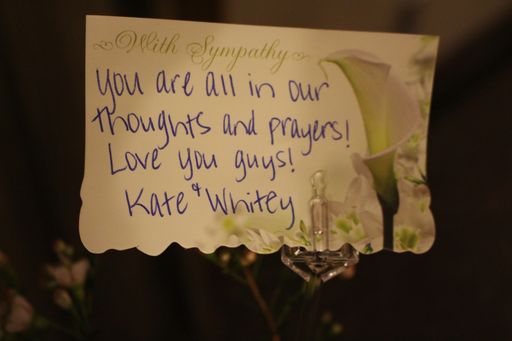 With Sympathy
you are all in our
thoughts and prayers!
Love you guys!
Kate & Whitey